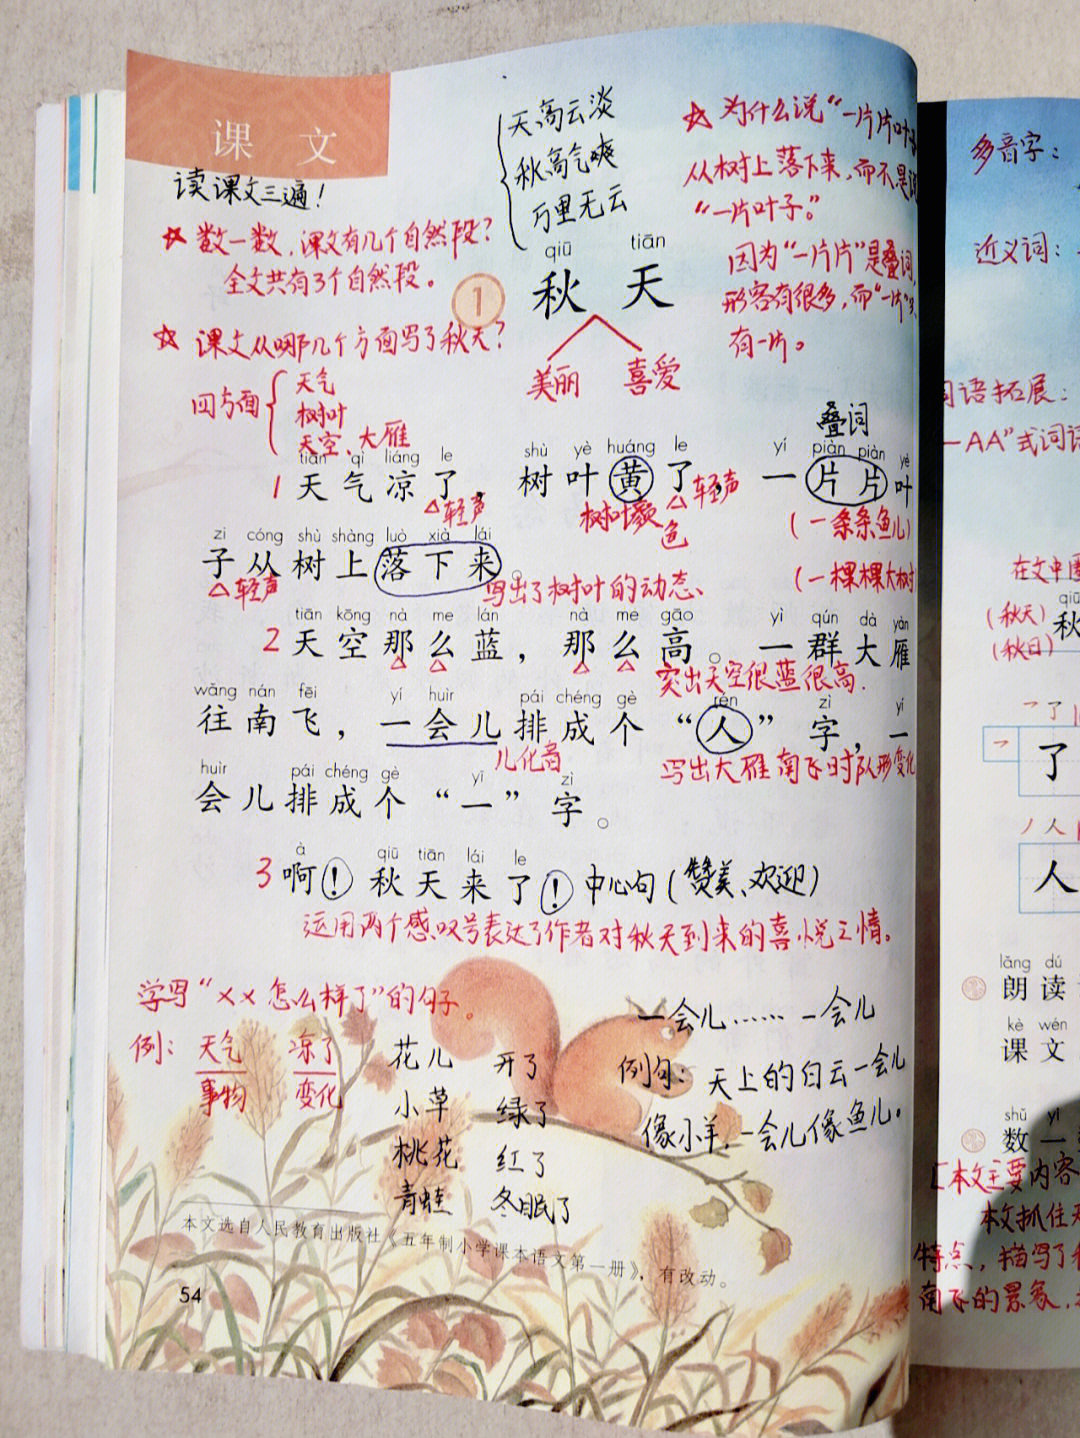 课 文
读课文三遍!
天高云淡
秋高气爽
万里无云
☆ 为什么说“一片片叶子
从树上落下来,而不是说
“一片叶子。”
因为“一片片”是叠词,
形容有很多,而“一片”只
有一片。
★ 数一数,课文有几个自然段?
全文共有3个自然段。
☆ 课文从哪几个方面写了秋天?
四方面
天气
树叶
天空、大雁
qiū tiān
1 秋 天
美丽 喜爱
叠词
tiān qì liáng le shù yè huáng le yí piàn piàn yè
1 天气凉了,树叶黄了,一片片叶
△轻声 树叶颜色 △轻声 (一条条鱼儿)
zi cóng shù shàng luò xià lái
子从树上落下来。
△轻声 写出了树叶的动态、 (一棵棵大树
tiān kōng nà me lán nà me gāo yì qún dà yàn
2 天空那么蓝,那么高。一群大雁
△ △ △ △ 突出天空很蓝很高.
wǎng nán fēi yí huìr pái chéng gè rén zì yí
往南飞,一会儿排成个“人”字,一
儿化音 写出大雁南飞时队形变化
huìr pái chéng gè yī zì
会儿排成个“一”字。
à qiū tiān lái le
3 啊!秋天来了!中心句(赞美、欢迎)
运用两个感叹号表达了作者对秋天到来的喜悦之情。
学写“××怎么样了”的句子。
例: 天气 凉了
事物 变化
花儿 开了
小草 绿了
桃花 红了
青蛙 冬眠了
一会儿……一会儿
例句: 天上的白云一会儿
像小羊,一会儿像鱼儿。
本文选自人民教育出版社《五年制小学课本语文第一册》,有改动。
54
多音字:
近义词:
词语拓展:
一AA”式词语
在文中圈
(秋天)
(秋日)
qiū
秋
一了
了
丿人
人
lǎng dú
朗读
kè wén
课文
shǔ yì
数一
[本文主要内容
本文抓住
特点,描写了
南飞的景象,